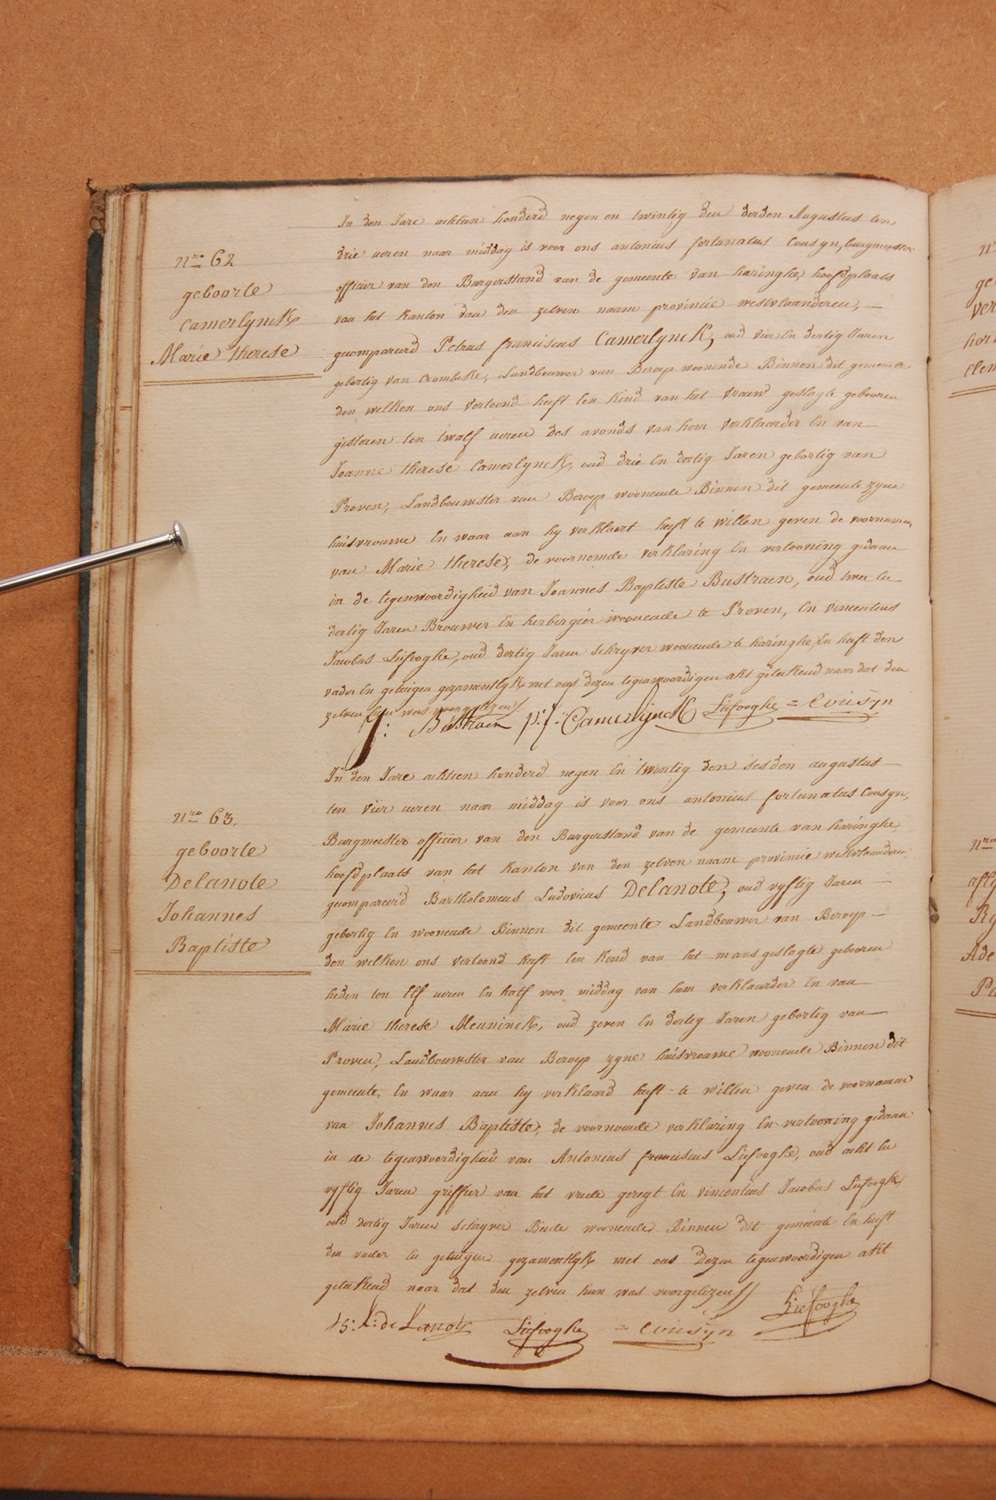 nro 62
geboorte
Camerlynck
Marie Therese
In den Jare achtien honderd negen en twintig den derden Augustus ten
drie uren naer middag is voor ons antonius fortunatus Cousyn, burgmeester
officier van den Burgerstand van de gemeente van haringhe, hoofdplaats
van het kanton van den zelven naam provincie westvlaanderen,
gecompareerd Petrus franciscus Camerlynck, oud vier en dertig Jaren
gebortig van Crombeke, Landbouwer van Beroep woonende Binnen dit gemeente
den welken ons vertoond heeft een kind van het vrouw geslagte geboren
gisteren ten twalf uren des avonds van hem verklaarder en van
Joanne Therese Camerlynck, oud drie en dertig Jaren gebortig van
Proven, Landbouwster van Beroep woonende Binnen dit gemeente zyne
huisvrouwe en waar aan hy verklaert heeft te willen geven de voornamen
van Marie Therese, de voornoemde verklaring en vertooning gedaan
in de tegenwoordigheid van Joannes Baptiste Bustraen, oud twee en
dertig Jaren Brouwer en herbergier woonende te Proven, en vincentius
Jacobus Liefooghe, oud dertig Jaren schryver woonende te haringhe, en heeft den
vader en getuigen gezamentlyk met ons dezen tegenwoordigen akt geteekend naar dat den
zelven hun was voorgelezen
J: Bustraen p: f: Camerlynck Liefooghe = Cousyn
nro 63.
geboorte
Delanote
Johannes
Baptiste
In den Jare achtien honderd negen en twintig den sesden augustus
ten vier uren naer middag is voor ons antonius fortunatus Cousyn,
Burgmeester officier van den Burgerstand van de gemeente van haringhe
hoofdplaats van het kanton van den zelven naam provincie westvlaanderen
gecompareerd Bartholomeus Ludovicus Delanote, oud vyftig Jaren
gebortig en woonende Binnen dit gemeente Landbouwer van Beroep
den welken ons vertoond heeft een kind van het mans geslagte geboren
heden ten elf uren en half voor middag van hem verklaarder en van
Marie Therese Meuninck, oud zeven en dertig Jaren gebortig van
Proven, Landbouwster van Beroep zyne huisvrouwe woonende Binnen dit
gemeente, en waar aan hy verklaard heeft te willen geven de voornamen
van Johannes Baptiste, de voornoemde verklaring en vertooning gedaan
in de tegenwoordigheid van Antonius franciscus Liefooghe, oud acht en
vyftig Jaren griffier van het vrede geregt en vincentius Jacobus Liefooghe
oud dertig Jaren schryver Beide woonende Binnen dit gemeente en heeft
den vader en getuigen gezamentlyk met ons dezen tegenwoordigen akt
geteekend naar dat den zelven hun was voorgelezen
L: de Lanote Liefooghe = Cousyn Liefooghe